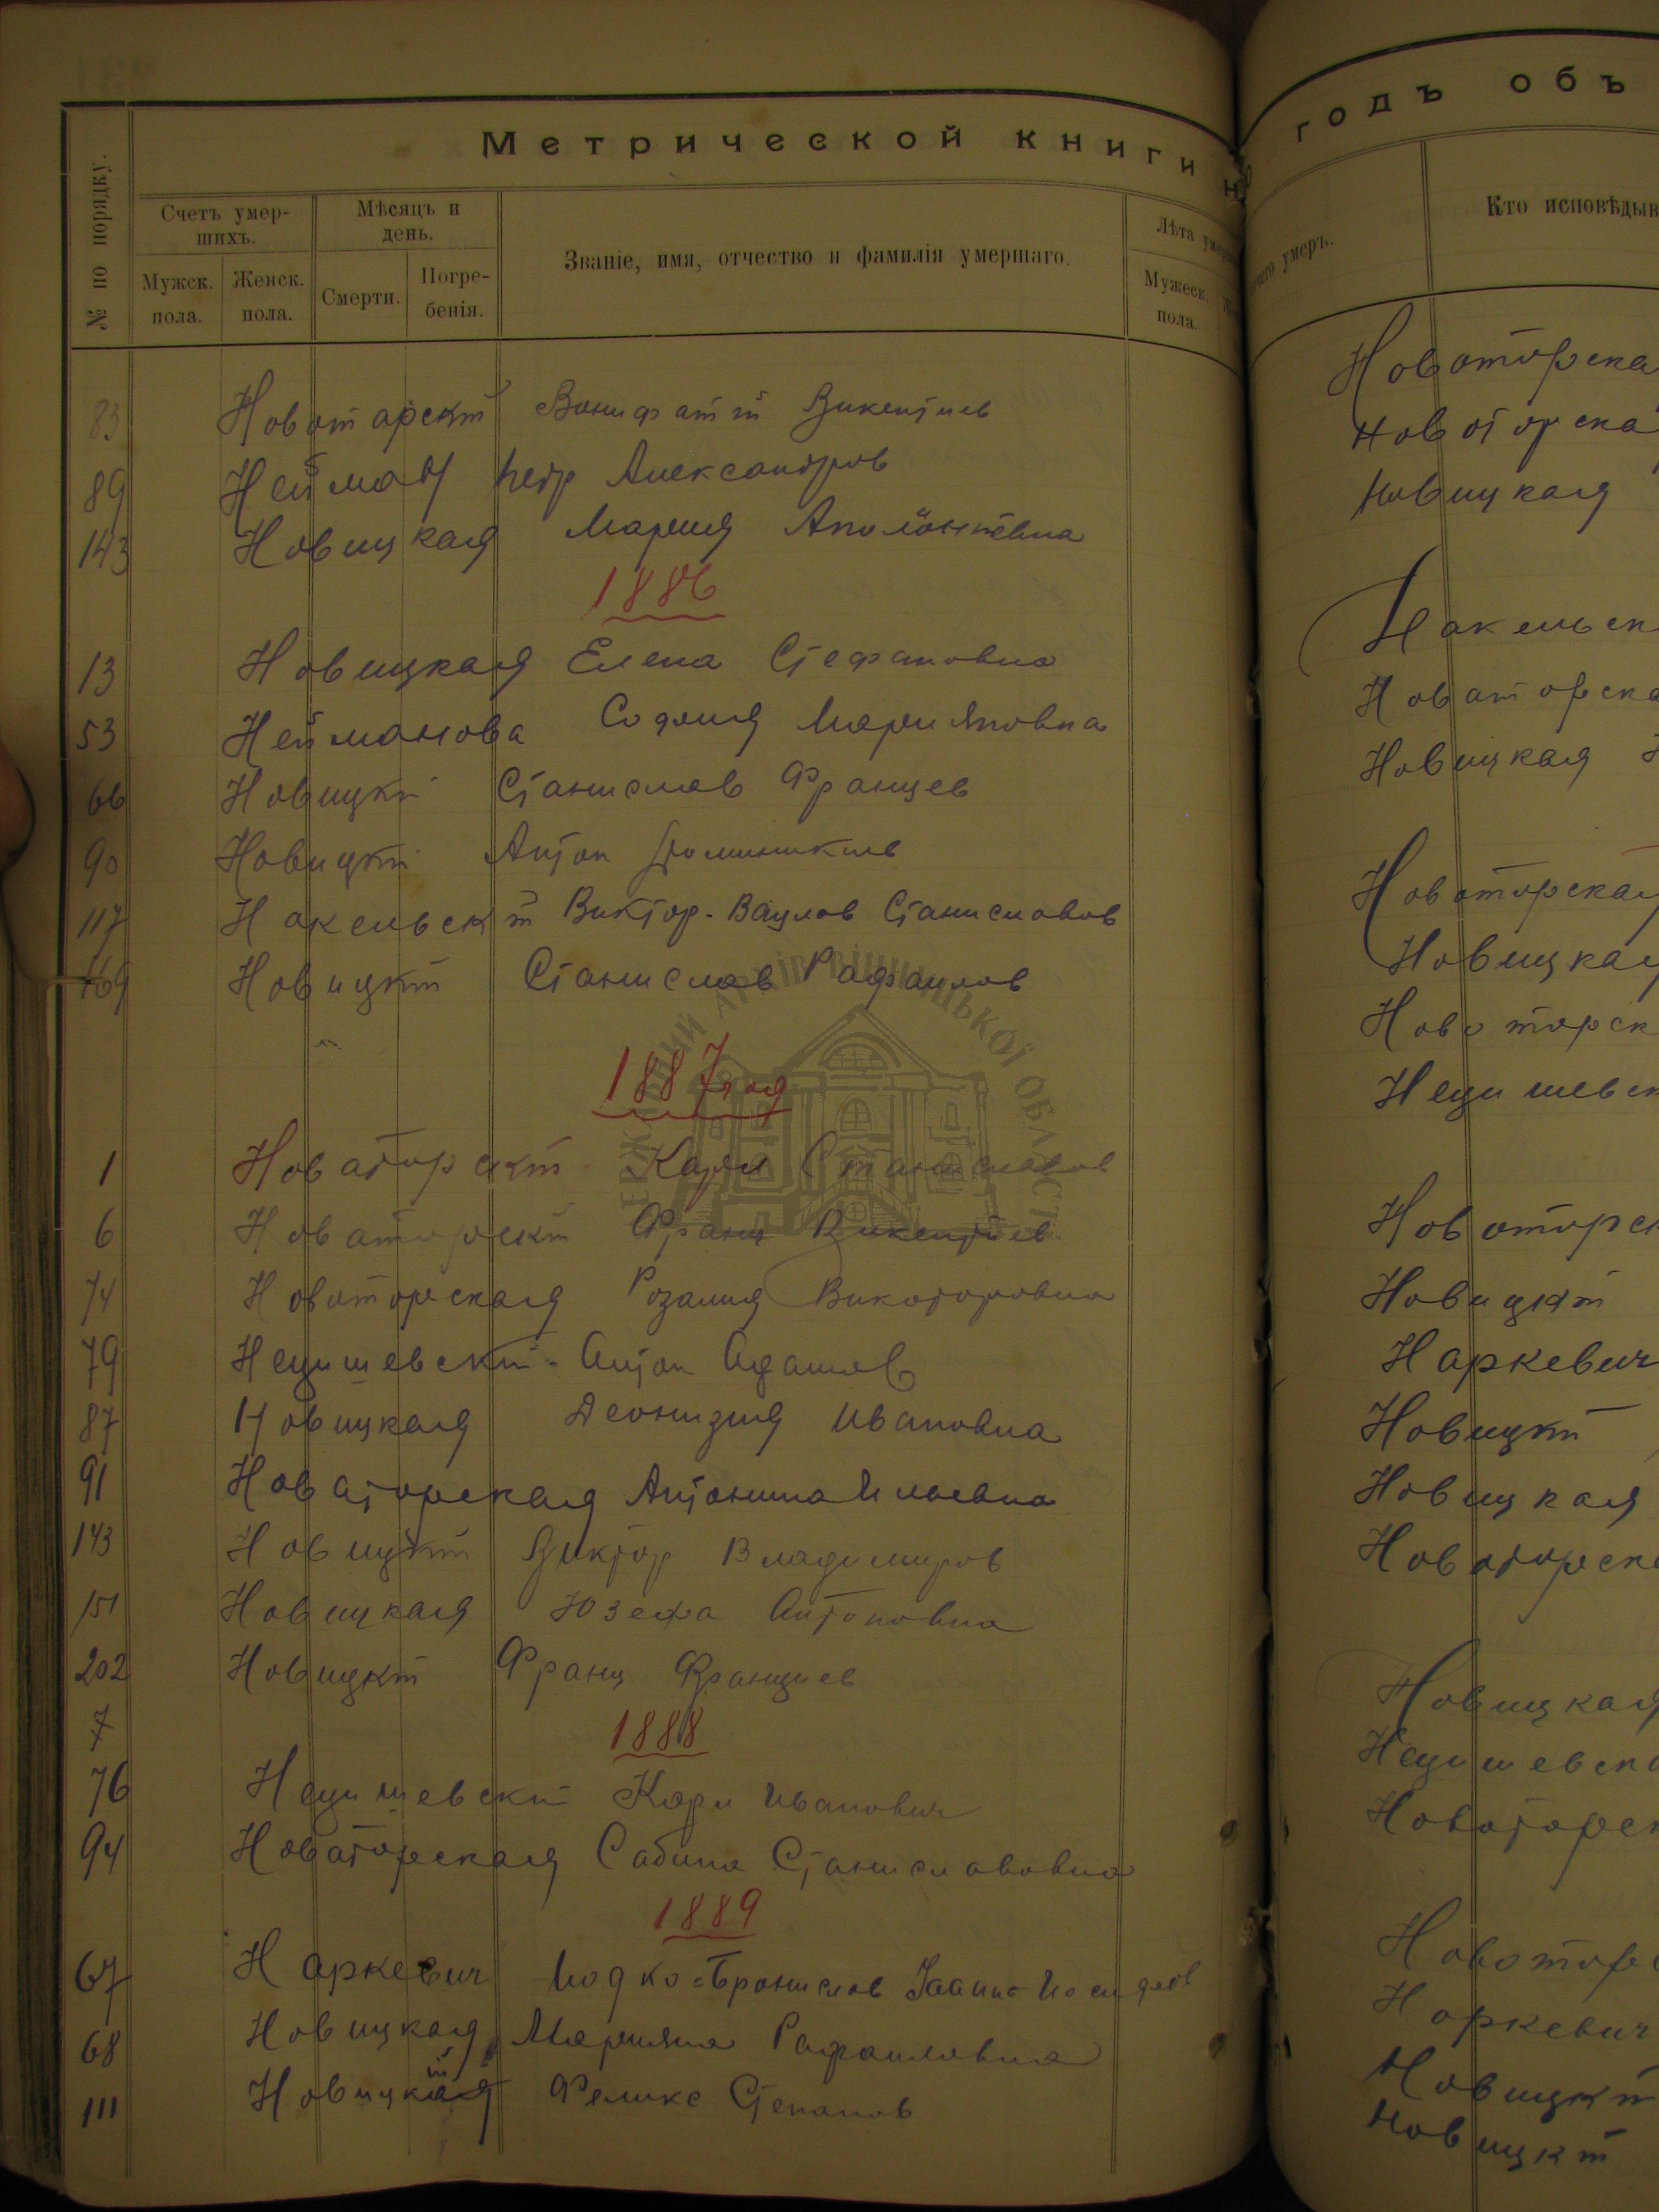 Метрической книги на
№ по порядку.
Счетъ умер-
шихъ.
Мужск.
пола.
Женск.
пола.
Мѣсяцъ и
день.
Смерти.
Погре-
бенія.
Званіе, имя, отчество и фамилія умершаго.
Лѣта
Мужеск.
пола.
83 Новотарскій Вонифатій Викентиев
89 Нейман Петр Александров
143 Новицкая Мария
1886
13 Новицкая Елена Стефановна
53 Нейманова София Марияновна
66 Новицкій Станислав Францев
90 Новицкій Антон Домиников
117 Накельскій Виктор-Вацлав Станиславов
169 Новицкій Станислав Рафаилов
1887 год
1 Новаторскій Карл Станиславов
6 Новаторскій Франц Викентьев
74 Новоторская Розалия Викторовна
79 Нецишевскій Антон Адамов
87 Новицкая Деонизия Ивановна
91 Новаторская Антонина Ильевна
143 Новицкій Виктор Владимиров
151 Новицкая Юзефа Антоновна
202 Новицкій Франц Францев
7
1888
76 Нецишевскій Карл Иванович
94 Новаторская Сабина Станиславовна
1889
67 Наркевич Иодко=Бронислав
68 Новицкая Марияна Рафаиловна
111 Новицкій Феликс Степанов
годъ объ
умеръ.
Кто исповѣдыв
Новоторска
Новоторска
Новицкая
Накельск
Новаторска
Новицкая
Новоторская
Новицкая
Новоторск
Нецишевск
Новоторск
Новицкій
Наркевич
Новицкій
Новицкая
Новаторск
Новицкая
Нецишевск
Новоторск
Новоторс
Наркевич
Новицкій
Новицкій